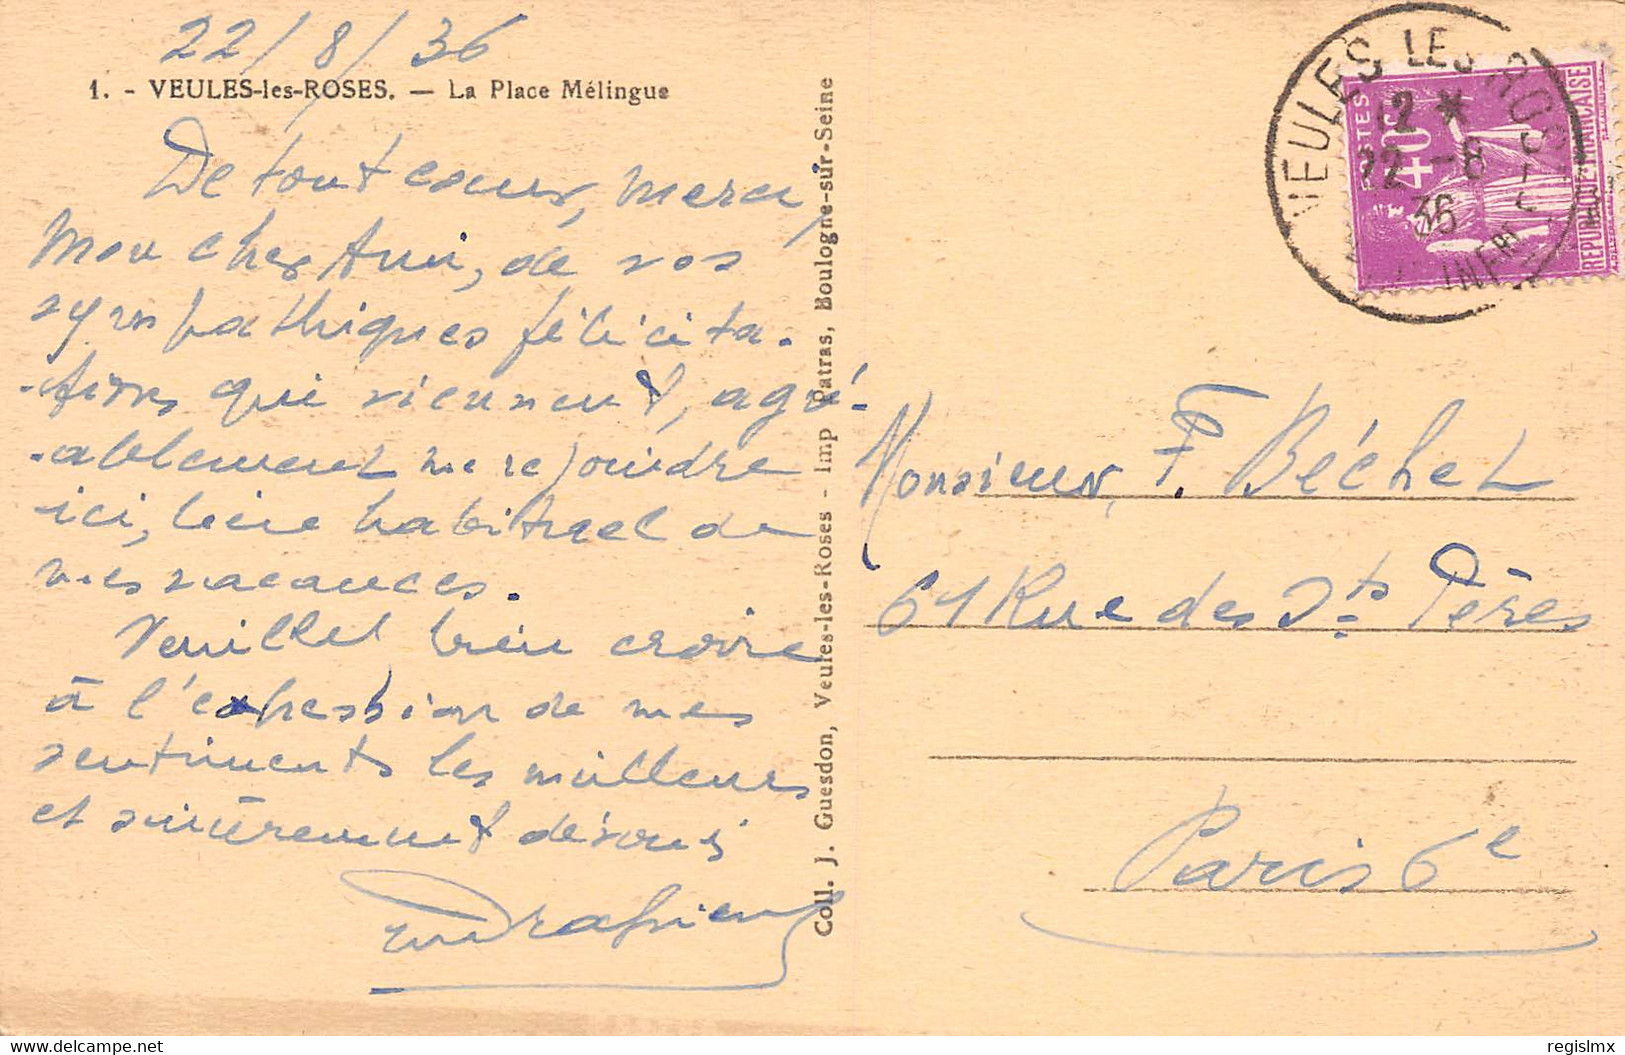 22/8/36
1. - VEULES-les-ROSES. — La Place Mélingue
De tout cœur, merci,
Mon cher Ami, de vos
sympathiques félicita-
-tions qui viennent, agré-
-ablement me rejoindre
ici, lieu habituel de
mes vacances.
Veuillez bien croire
à l'expression de mes
sentiments les meilleurs
et sincèrement dévoués
Coll. J. Guesdon, Veules-les-Roses - Imp Patras, Boulogne-sur-Seine
VEULES LES ROSES
12 *
22 -8
36
INFRE
POSTES
40c
REPUBLIQUE FRANCAISE
Monsieur, F. Béchet
61 Rue des Sts Pères
Paris 6e
www.delcampe.net
regislmx